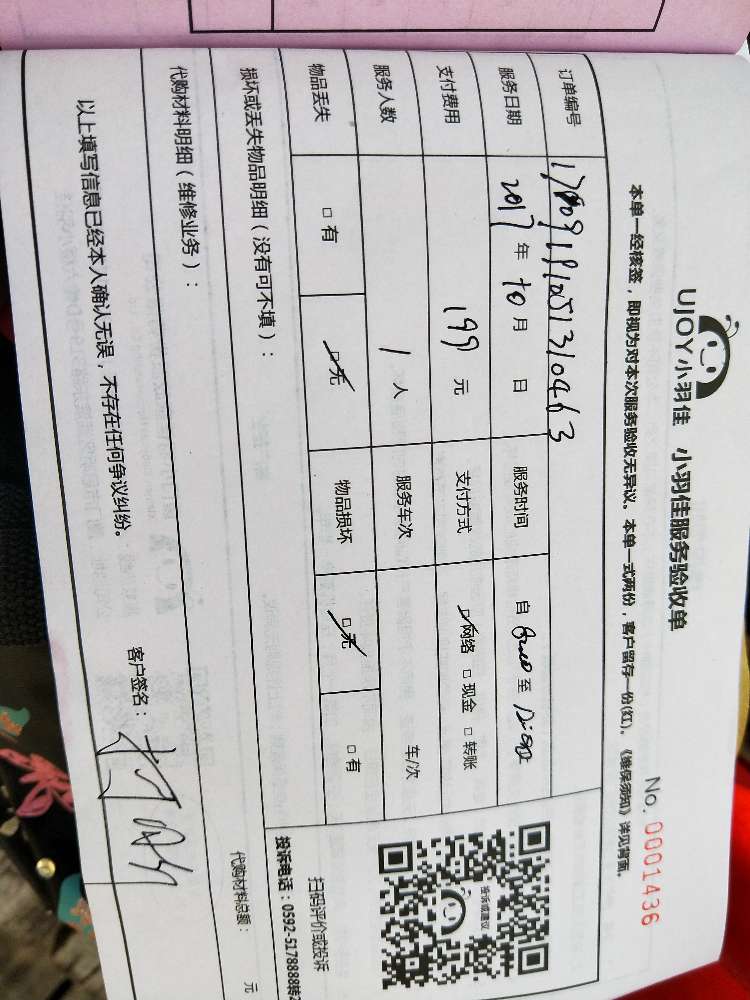 UJOY小羽佳 小羽佳服务验收单
No. 0001436
本单一经核签，即视为对本次服务验收无异议。本单一式两份，客户留存一份(红)。《维保须知》详见背面。
订单编号
服务日期 2017年10月 日 服务时间 自 至
支付费用 199元 支付方式 □网络 □现金 □转账
服务人数 1人 服务车次 车/次
物品丢失 □有 □无 物品损坏 □无 □有
投诉或建议
扫码评价或投诉
投诉电话：0592-5178888转2
损坏或丢失物品明细（没有可不填）：
代购材料明细（维修业务）：
代购材料总额： 元
以上填写信息已经本人确认无误，不存在任何争议纠纷。
客户签名：